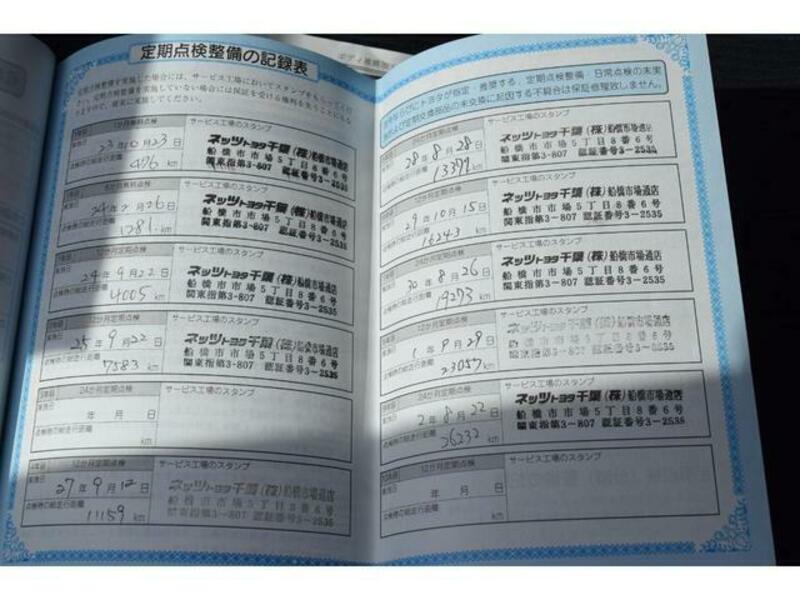 定期点検整備の記録表
定期点検整備を実施した場合には、サービス工場においてスタンプをもらってくだ
さい。定期点検整備を実施していない場合には保証を受ける権利を失うことにもな
りますので、確実に実施してください。
1か月無料点検
サービス工場のスタンプ
実施日 23年10月23日
点検時の総走行距離 476 km
ネッツトヨタ千葉(株)船橋市場通店
船橋市市場5丁目8番6号
関東指第3-807 認証番号3-2535
6か月無料点検
サービス工場のスタンプ
実施日 24年2月26日
点検時の総走行距離 1281 km
ネッツトヨタ千葉(株)船橋市場通店
船橋市市場5丁目8番6号
関東指第3-807 認証番号3-2535
12か月定期点検
サービス工場のスタンプ
実施日 24年9月22日
点検時の総走行距離 4005 km
ネッツトヨタ千葉(株)船橋市場通店
船橋市市場5丁目8番6号
関東指第3-807 認証番号3-2535
12か月定期点検
サービス工場のスタンプ
実施日 25年9月22日
点検時の総走行距離 7583 km
ネッツトヨタ千葉(株)船橋市場通店
船橋市市場5丁目8番6号
関東指第3-807 認証番号3-2535
24か月定期点検
サービス工場のスタンプ
実施日 年 月 日
点検時の総走行距離 km
4年目 12か月定期点検
サービス工場のスタンプ
実施日 27年9月12日
点検時の総走行距離 11159 km
ネッツトヨタ千葉(株)船橋市場通店
船橋市市場5丁目8番6号
関東指第3-807 認証番号3-2535
ならびにトヨタが指定・推奨する、定期点検整備・日常点検の未実
および定期交換部品の未交換に起因する不具合は保証修理致しません。
サービス工場のスタンプ
28年8月28日
13399 km
ネッツトヨタ千葉(株)船橋市場通店
船橋市市場5丁目8番6号
関東指第3-807 認証番号3-2535
12か月定期点検
サービス工場のスタンプ
29年10月15日
点検時の総走行距離 16243 km
ネッツトヨタ千葉(株)船橋市場通店
船橋市市場5丁目8番6号
関東指第3-807 認証番号3-2535
24か月定期点検
サービス工場のスタンプ
30年8月26日
点検時の総走行距離 19273 km
ネッツトヨタ千葉(株)船橋市場通店
船橋市市場5丁目8番6号
関東指第3-807 認証番号3-2535
12か月定期点検
サービス工場のスタンプ
1年9月29日
点検時の総走行距離 23057 km
ネッツトヨタ千葉(株)船橋市場通店
船橋市市場5丁目8番6号
関東指第3-807 認証番号3-2535
24か月定期点検
サービス工場のスタンプ
実施日 2年8月22日
点検時の総走行距離 26232 km
ネッツトヨタ千葉(株)船橋市場通店
船橋市市場5丁目8番6号
関東指第3-807 認証番号3-2535
12か月定期点検
サービス工場のスタンプ
実施日 年 月 日
点検時の総走行距離 km